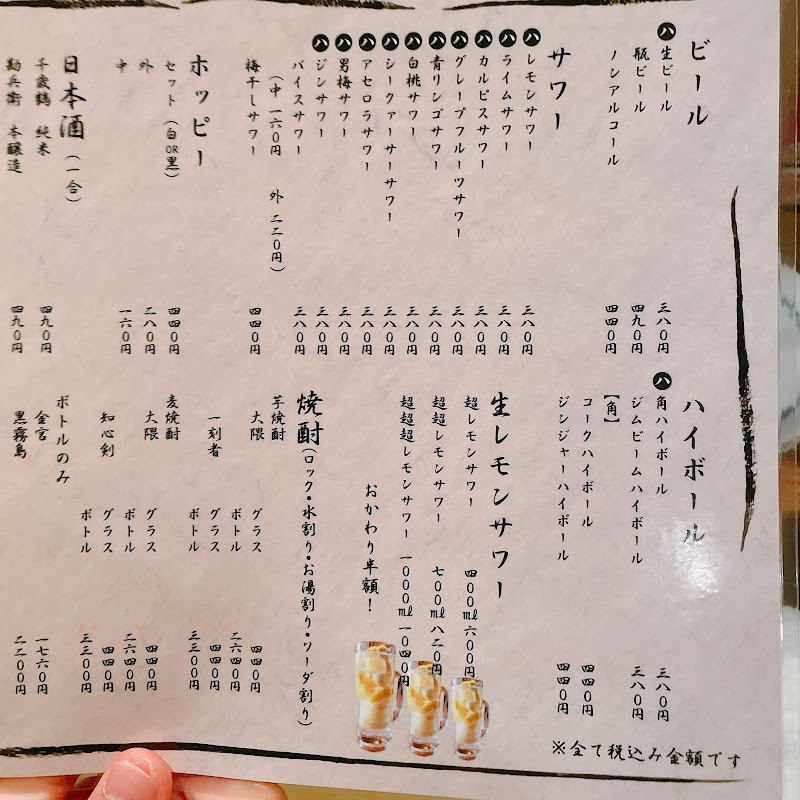 ビール
ハ 生ビール 三八〇円
瓶ビール 四九〇円
ノンアルコール 四四〇円
サワー
ハ レモンサワー 三八〇円
ハ ライムサワー 三八〇円
ハ カルピスサワー 三八〇円
ハ グレープフルーツサワー 三八〇円
ハ 青リンゴサワー 三八〇円
ハ 白桃サワー 三八〇円
ハ シークァーサーサワー 三八〇円
ハ アセロラサワー 三八〇円
ハ 男梅サワー 三八〇円
ハ ジンサワー 三八〇円
バイスサワー 三八〇円
(中 一六〇円 外 二二〇円)
梅干しサワー 四四〇円
ホッピー
セット(白OR黒) 四四〇円
外 二八〇円
中 一六〇円
日本酒(一合)
千歳鶴 純米 四九〇円
勘兵衛 本醸造 四九〇円
ハイボール
ハ 角ハイボール 三八〇円
ジムビームハイボール 三八〇円
【角】
コークハイボール 四四〇円
ジンジャーハイボール 四四〇円
生レモンサワー
超レモンサワー 四〇〇ml 六〇〇円
超超レモンサワー 七〇〇ml 八二〇円
超超超レモンサワー 一〇〇〇ml 一〇四〇円
おかわり半額!
焼酎(ロック・水割り・お湯割り・ソーダ割り)
芋焼酎
大隈 グラス 四四〇円
ボトル 二六四〇円
一刻者 グラス 四四〇円
ボトル 三三〇〇円
麦焼酎
大隈 グラス 四四〇円
ボトル 二六四〇円
知心剣 グラス 四四〇円
ボトル 三三〇〇円
ボトルのみ
金宮 一七六〇円
黒霧島 二二〇〇円
※全て税込み金額です